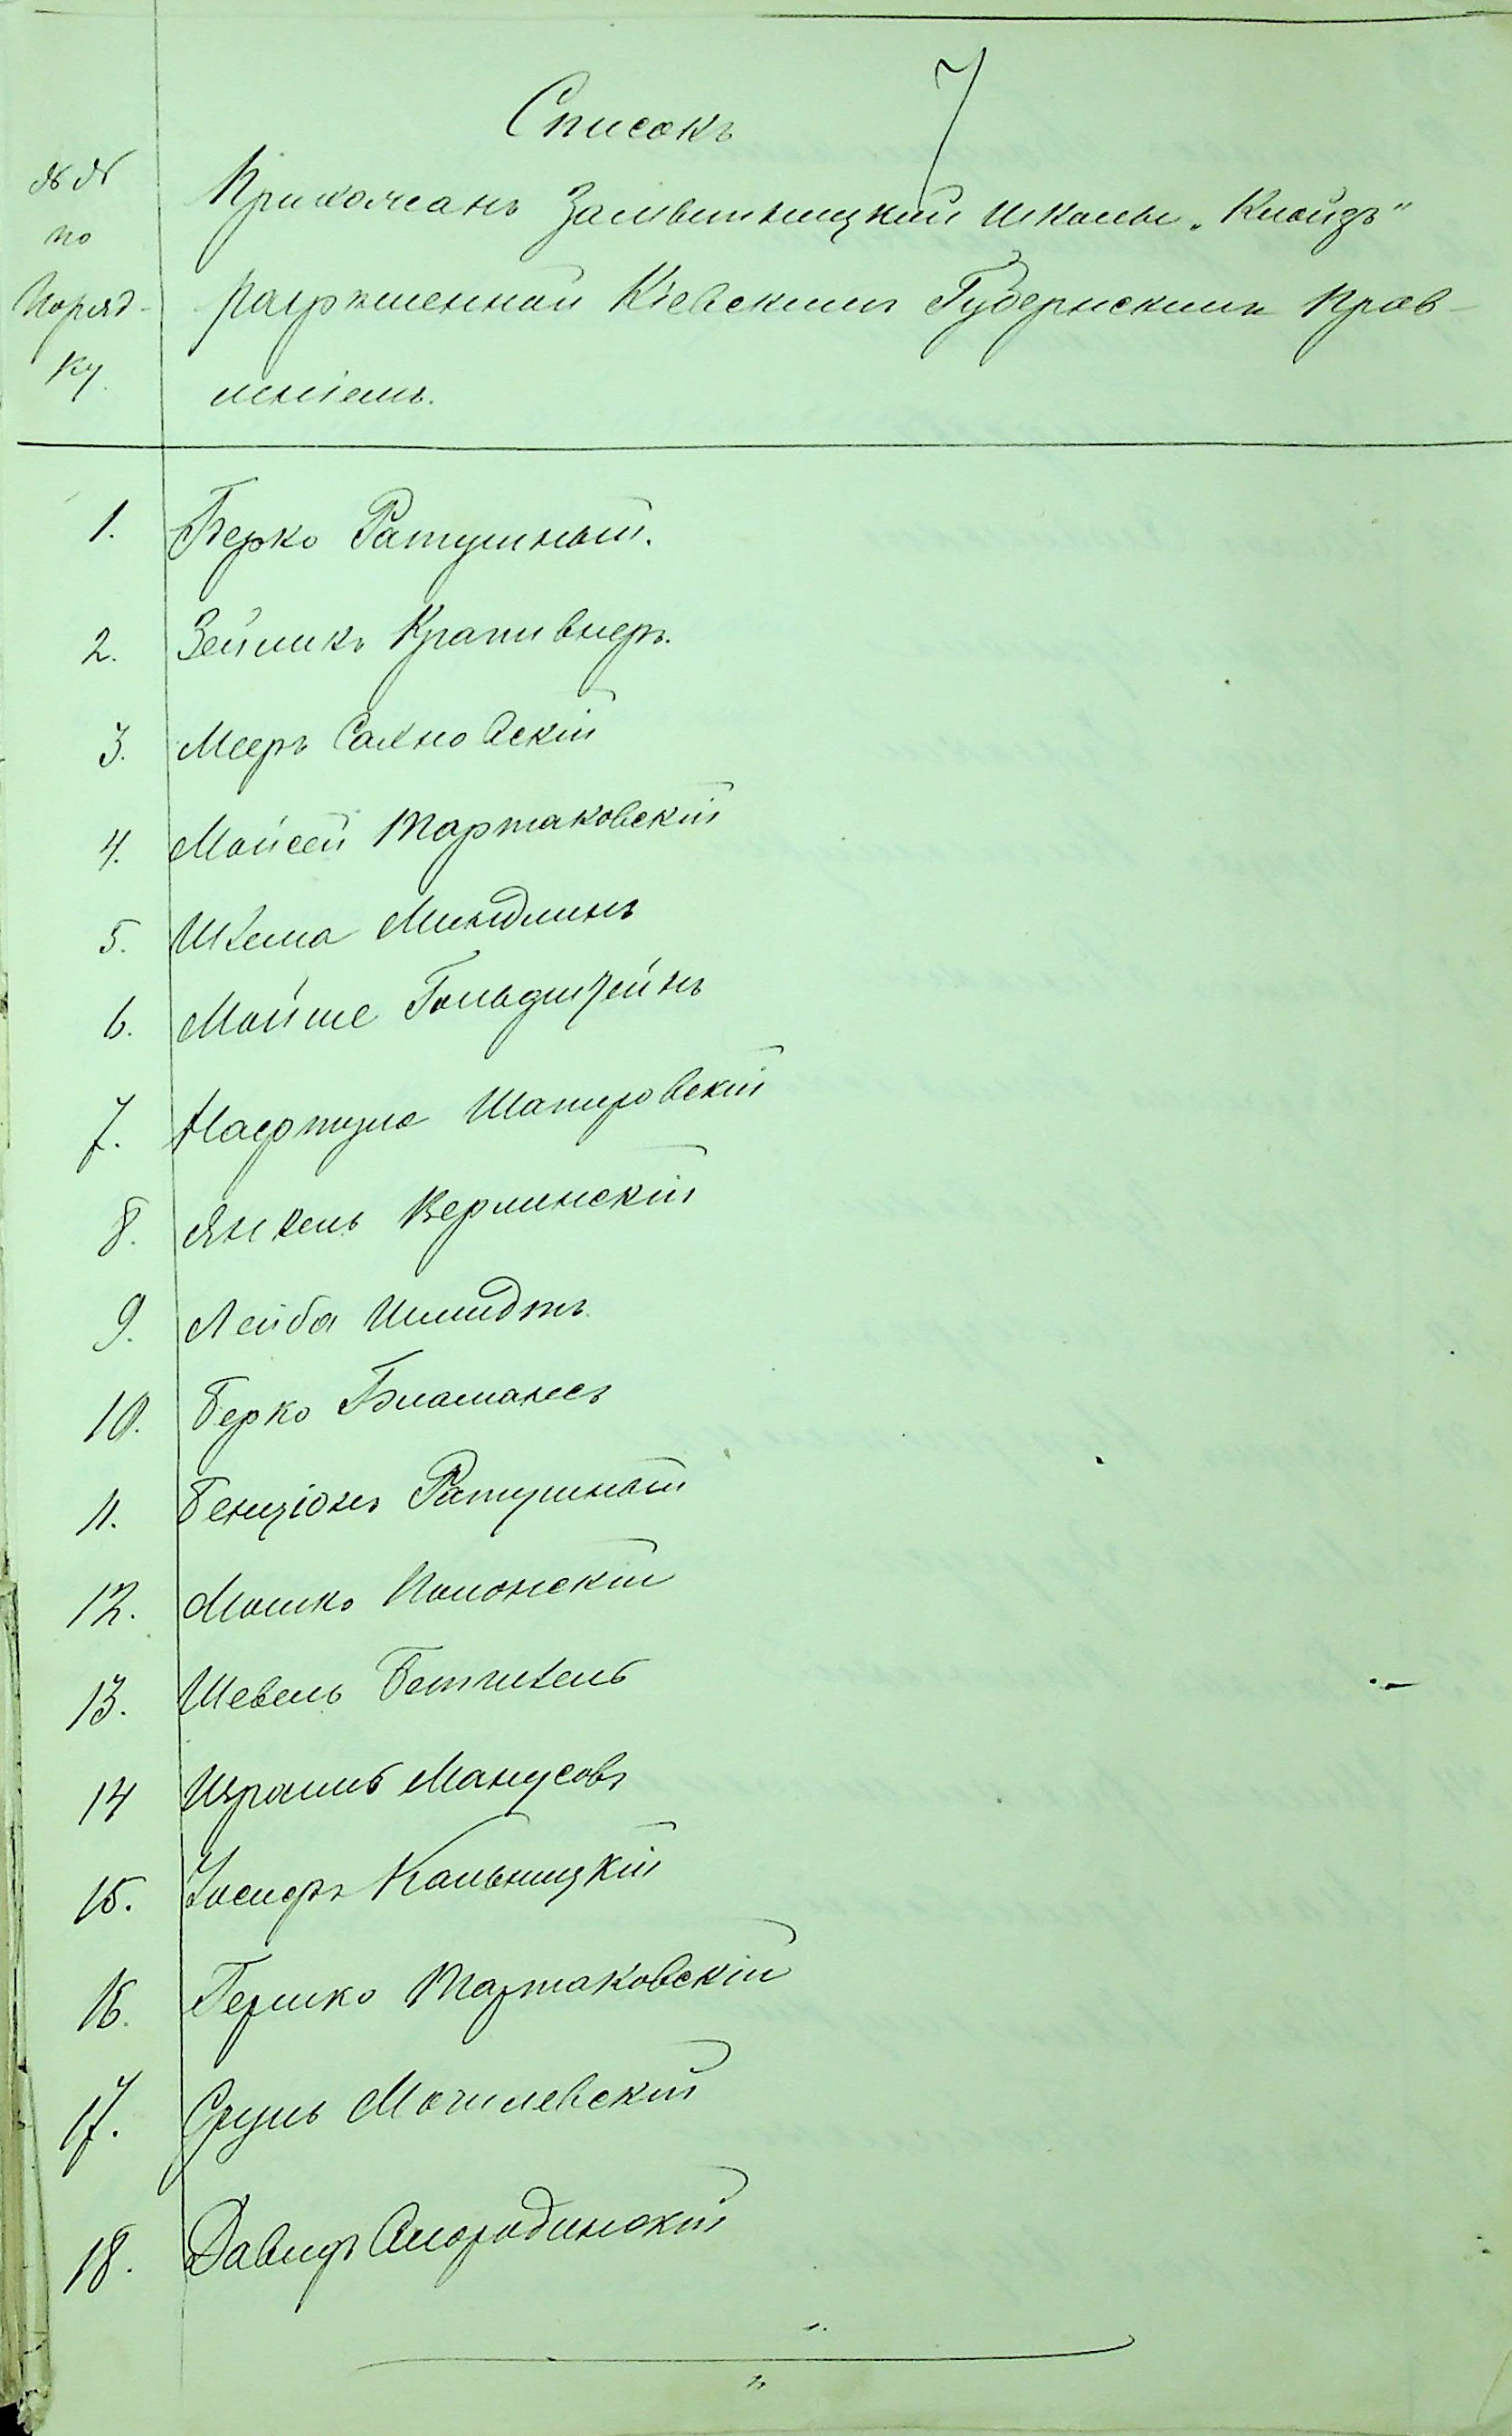 7
Списокъ
№№
по
поряд-
ку.
Прихожанъ Золотницкой школы „Клойзъ"
разрѣшенной Кіевскимъ Губернскимъ Прав-
леніемъ.
1. Берко Ратушный.
2. Зейликъ Крапивнеръ.
3. Мееръ Сахновскій
4. Мойсей Тартаковскій
5. Шлема Миндлинъ
6. Мойше Гольдштейнъ
7. Нафтула Шапировскій
8. Янкель Верлинскій
9. Лейба Шмидтъ.
10. Берко Бламанесъ
11. Бенціонъ Ратушный
12. Мошко Полонскій
13. Шевель
14 Израиль Манусовъ
15. Іосифъ Кальницкій
16. Гершко Тартаковскій
17. Сруль Могилевскій
18. Давидъ Смородинскій